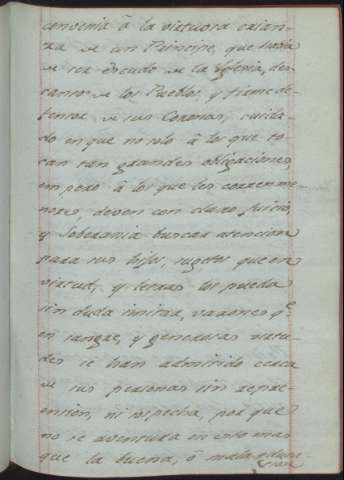 convenia â la virtuosa crian-
za de un Principe, que havia
de ser escudo de la Yglesia, des-
canso de los Pueblos, y firme de-
fensor de sus Coronas, cuida-
do en que no solo â los que to-
can tan grandes obligaciones,
em pero â los que les corren me-
nores, deven con claro juicio,
y Soberania buscar atencion
para sus hijos, sugetos que en
virtud, y letras los pueda
sin duda imitar, varones q.e
en sangre, y generosas virtu-
des se han admitido cerca
de sus personas sin repre-
ension, ni sospecha, por que
no se aventura en esto mas
que la buena, ô mala educa-
cion